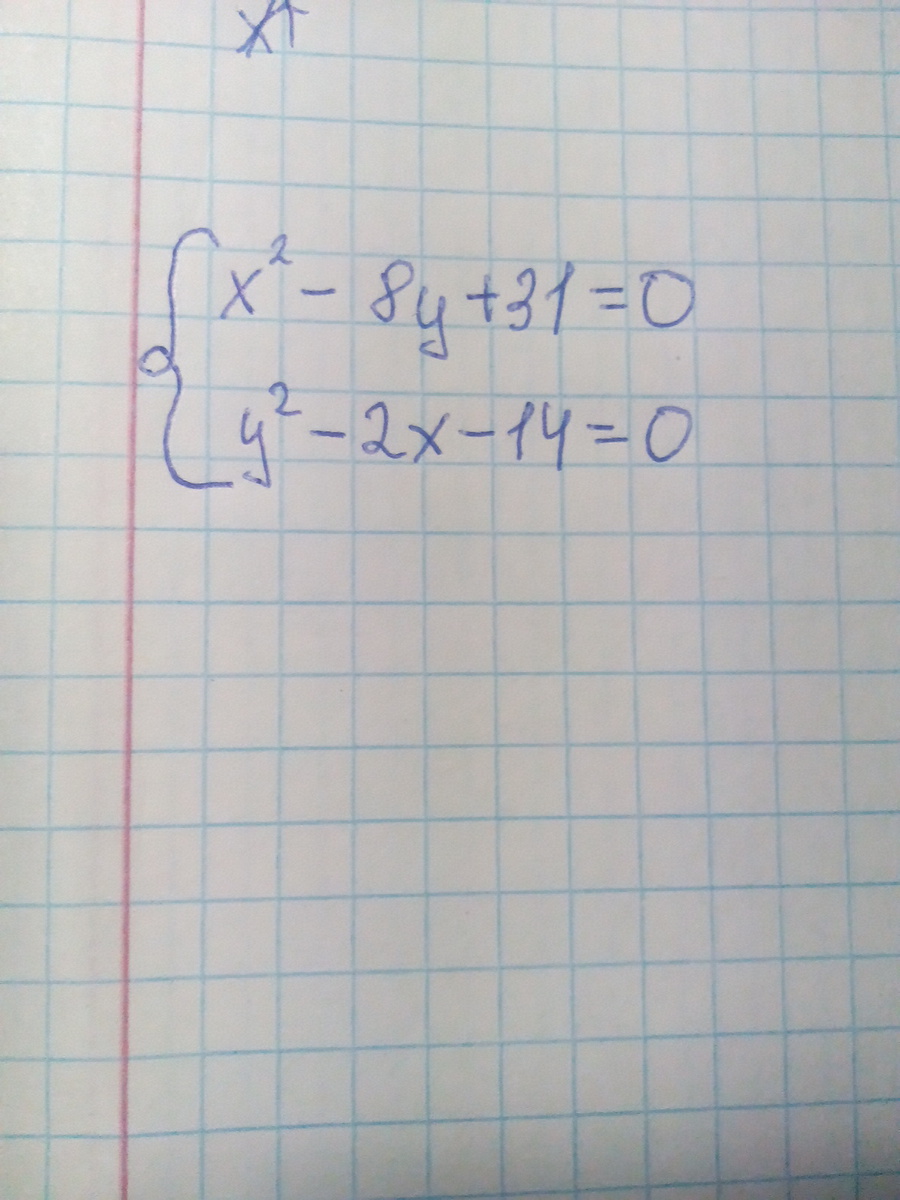 x² - 8y + 31 = 0
y² - 2x - 14 = 0